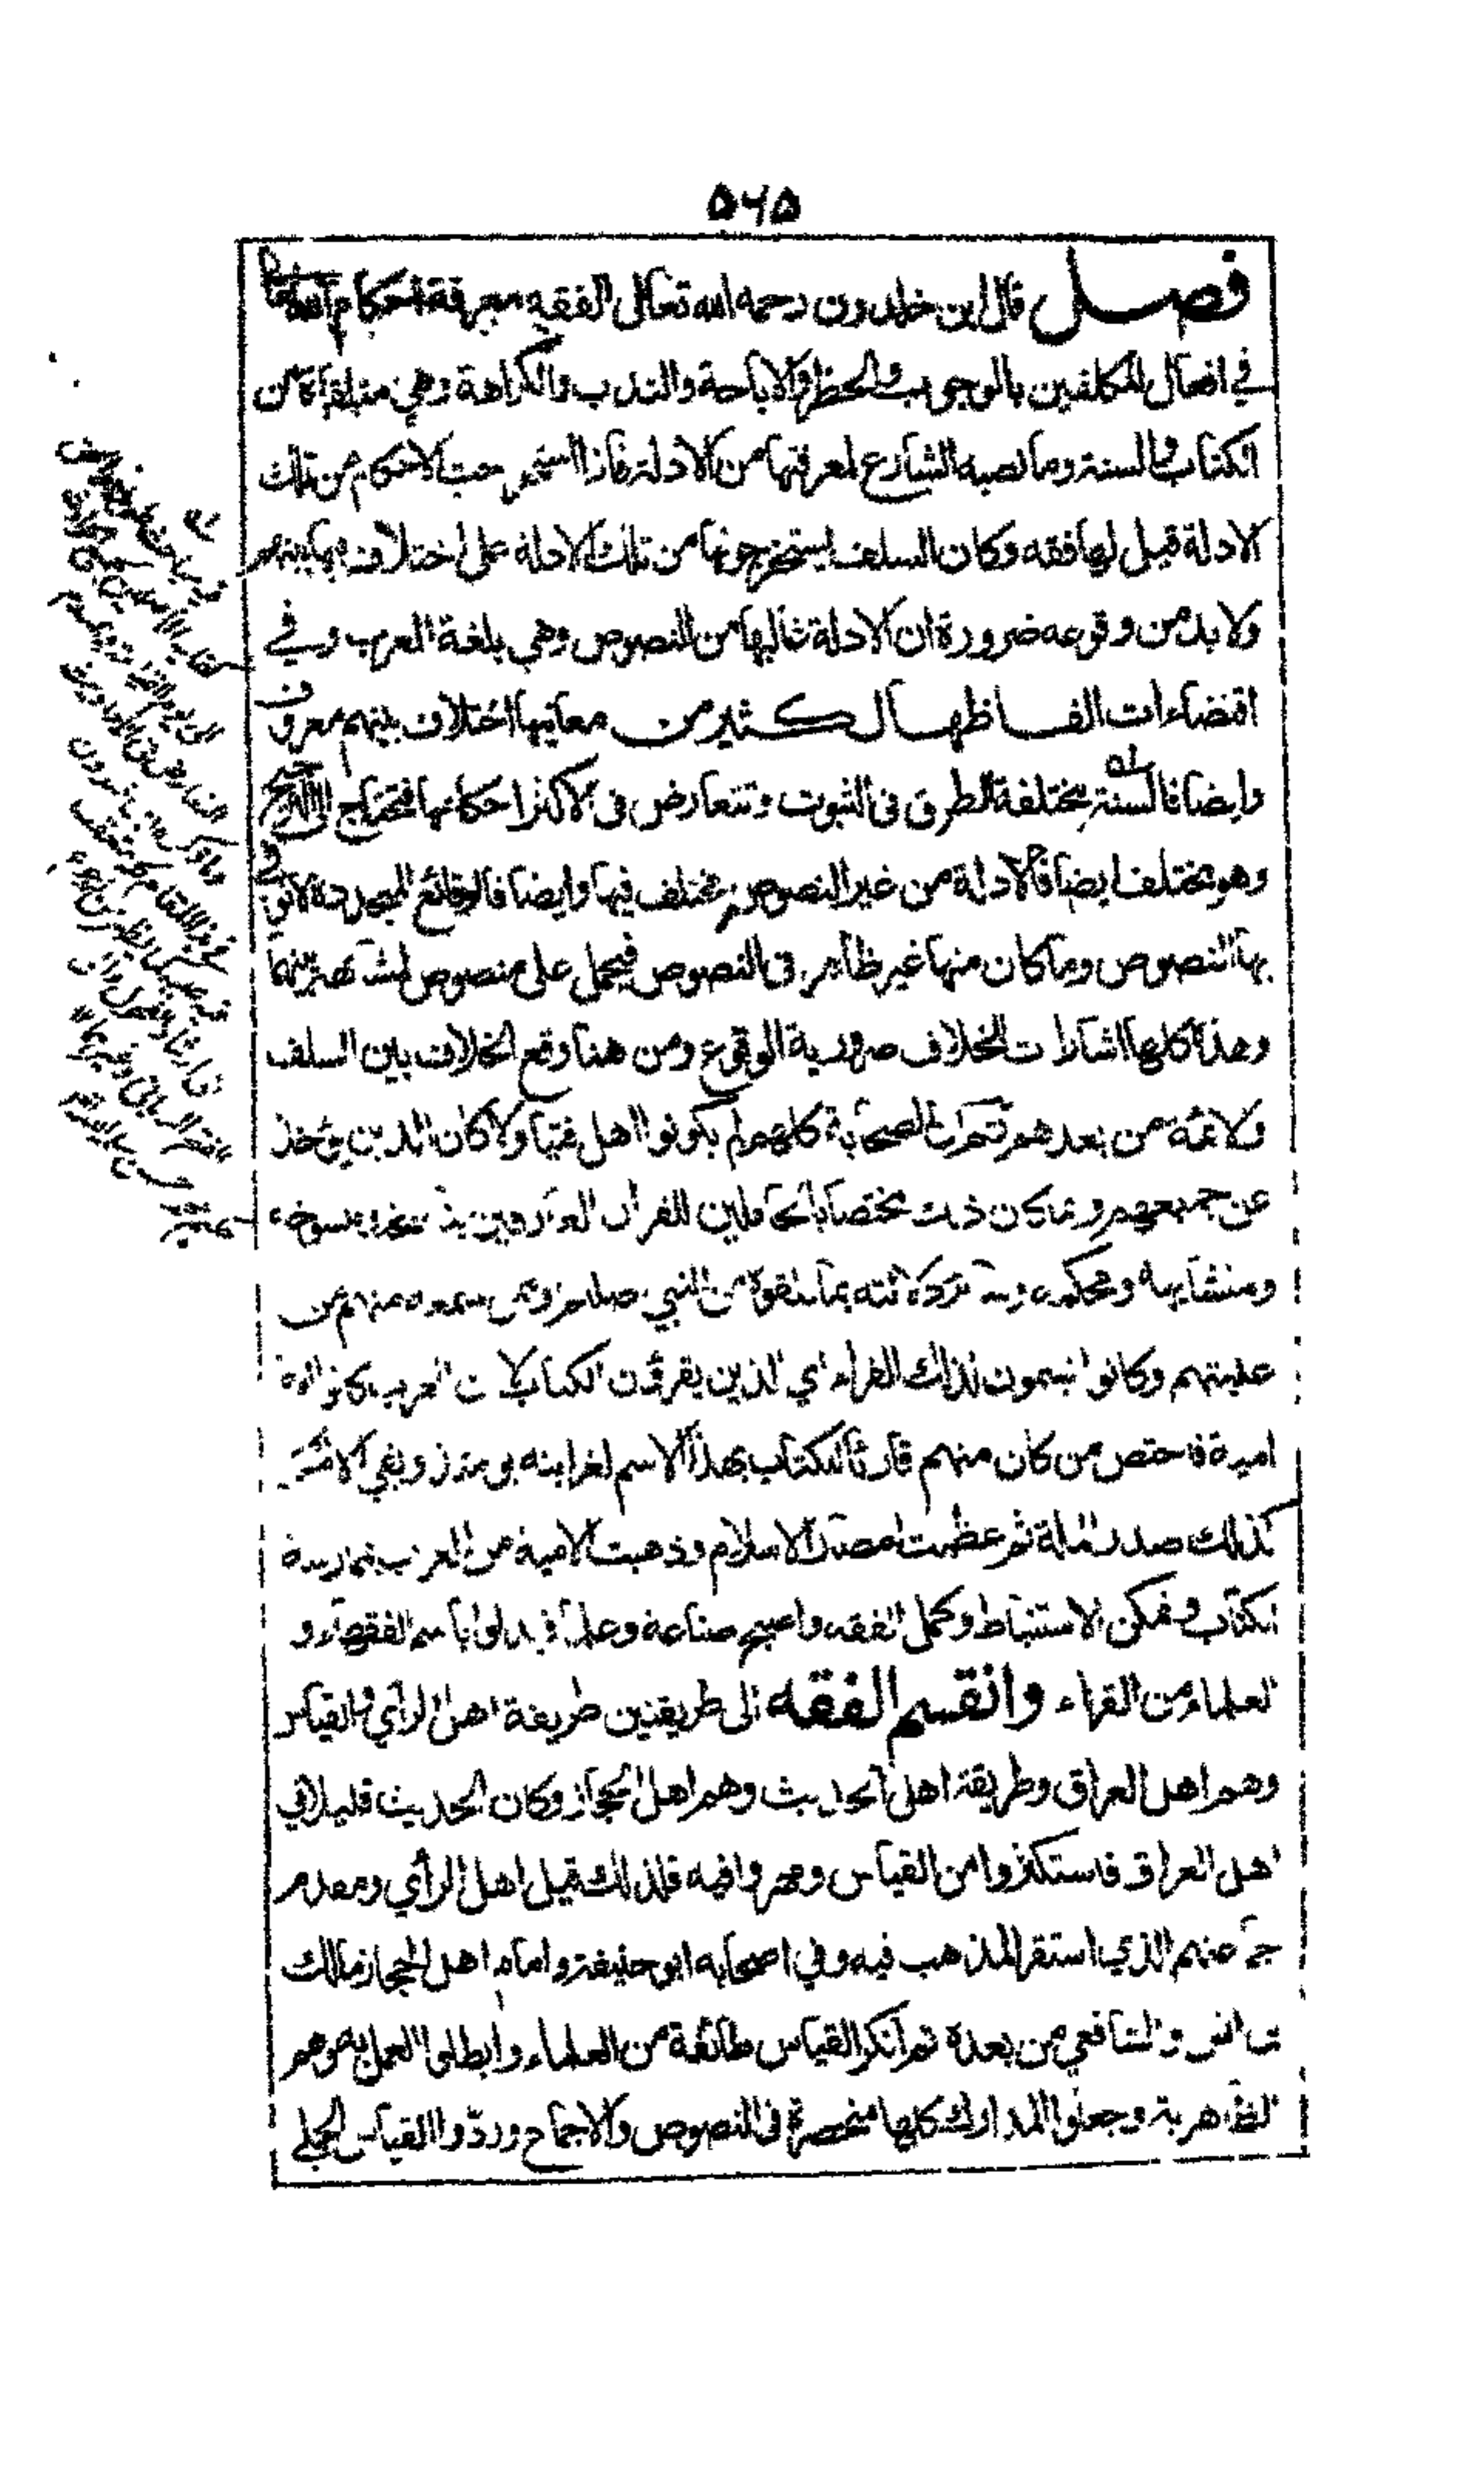 ٥٦٥
فصل قال ابن خلدون رحمه الله تعالى الفقه معرفة احكام الله تعالى
في افعال المكلفين بالوجوب والحظر والاباحة والندب والكراهة وهي متلقاة من
الكتاب والسنة وما نصبه الشارع لمعرفتها من الادلة فاذا استخرجت الاحكام من تلك
الادلة قيل لها فقه وكان السلف يستخرجونها من تلك الادلة على اختلاف فيها بينهم
ولا بد من وقوعه ضرورة ان الادلة غالبها من النصوص وهي بلغة العرب وفي
اقتضاءات الفاظها لكثير من معانيها اختلاف بينهم معروف
وايضا فالسنة مختلفة الطرق في الثبوت وتتعارض في الاكثر احكامها فتحتاج الى الترجيح
وهو مختلف ايضا فالادلة من غير النصوص مختلف فيها وايضا فالوقائع المتجددة لا توفي
بها النصوص وما كان منها غير ظاهر في النصوص فيحمل على منصوص لمشابهة بينهما
وهذه كلها اشارات للخلاف ضرورية الوقوع ومن هنا وقع الخلاف بين السلف
والائمة من بعدهم ثم ان الصحابة كلهم لم يكونوا اهل فتيا ولا كان الدين يؤخذ
عن جميعهم وانما كان ذلك مختصا بالحاملين للقرآن العارفين بناسخه ومنسوخه
ومتشابهه ومحكمه وسائر دلالته بما تلقوه من النبي صلعم او ممن سمعه منهم من
عليتهم وكانوا يسمون لذلك القراء اي الذين يقرؤن الكتاب لان العرب كانوا امة
امية فاختص من كان منهم قارئا للكتاب بهذا الاسم لغرابته يومئذ وبقي الامر
كذلك صدر الملة ثم عظمت امصار الاسلام وذهبت الامية من العرب بممارسة
الكتاب وتمكن الاستنباط وكمل الفقه واصبح صناعة وعلما فبدلوا باسم الفقهاء و
العلماء من القراء وانقسم الفقه الى طريقتين طريقة اهل الرأي والقياس
وهم اهل العراق وطريقة اهل الحديث وهم اهل الحجاز وكان الحديث قليلا في
اهل العراق فاستكثروا من القياس ومهروا فيه فلذلك قيل اهل الرأي ومقدم
جماعتهم الذي استقر المذهب فيه وفي اصحابه ابو حنيفة وامام اهل الحجاز مالك
بن انس والشافعي من بعده ثم انكر القياس طائفة من العلماء وابطلوا العمل به وهم
الظاهرية وجعلوا المدارك كلها منحصرة في النصوص والاجماع وردوا القياس الجلي